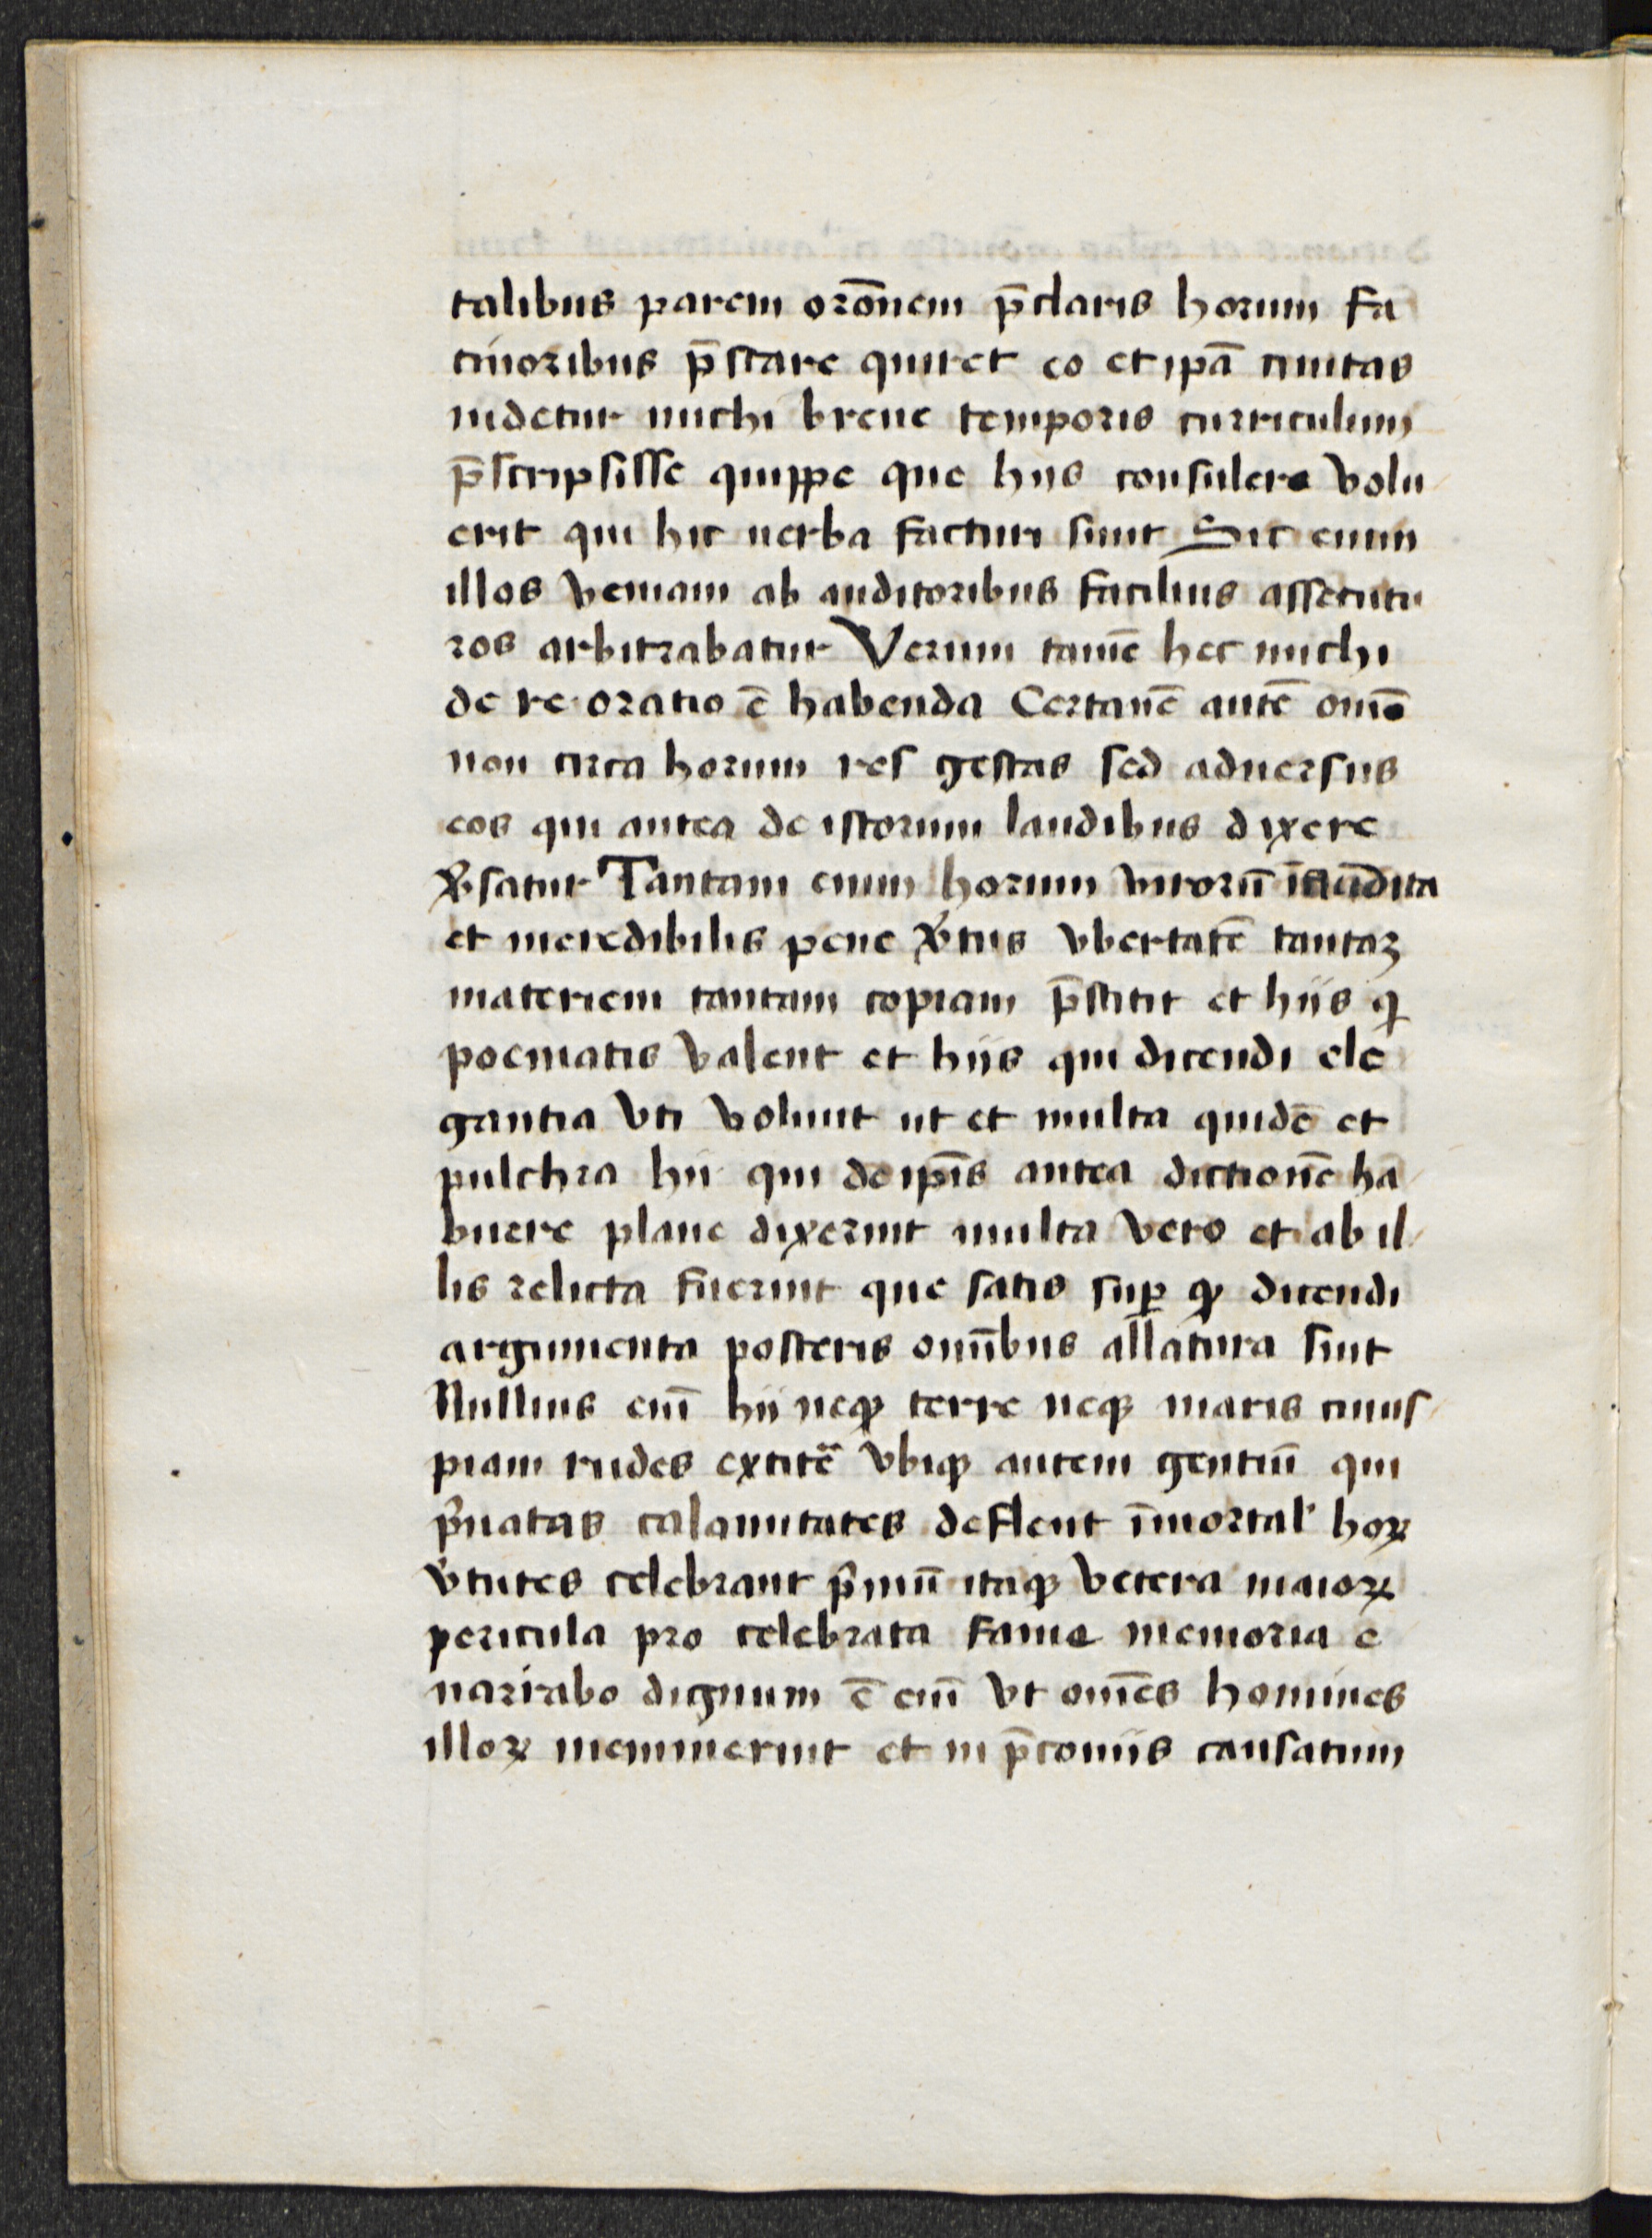 talibus parem orōnem p̄claris horum fa
cinoribus p̄stare quiret eo et ipā ciuitas
uidetur michi breue temporis curriculum
p̄scripsisse quippe que hiis consulere volu
erit qui hic uerba facturi sunt Sic enim
illos veniam ab auditoribus facilius assecutu
ros arbitrabatur Verum tamē hec michi
de re oratio ē habenda Certamē autē omē
non circa horum res gestas sed aduersus
eos qui antea de istorum laudibus dixere
v̓satur Tantam enim horum virorū īaudita
et incredibilis pene v̓tus vbertatē tantaȝ
materiem tantam copiam p̄stitit et hiis q
poematis valent et hiis qui dicendi ele
gantia vti volunt ut et multa quidē et
pulchra hii qui de ip̄is antea dictionē ha
buere plane dixerint multa vero et ab il
lis relicta fuerint que satis suꝑ ꝙ dicendi
argumenta posteris om̄ibus allatura sint
Nullius eiī hii neqꝫ terre neqꝫ maris cuius
piam rudes extitē vbiqꝫ autem gentiū qui
p̓uatas calamitates deflent īmortal' hoꝝ
v̓tutes celebrant p̓mū itaqꝫ vetera maioꝝ
pericula pro celebrata fame memoria e
narrabo dignum ē eiī vt om̄es homines
illoꝝ meminerint et in p̄coniis causatum